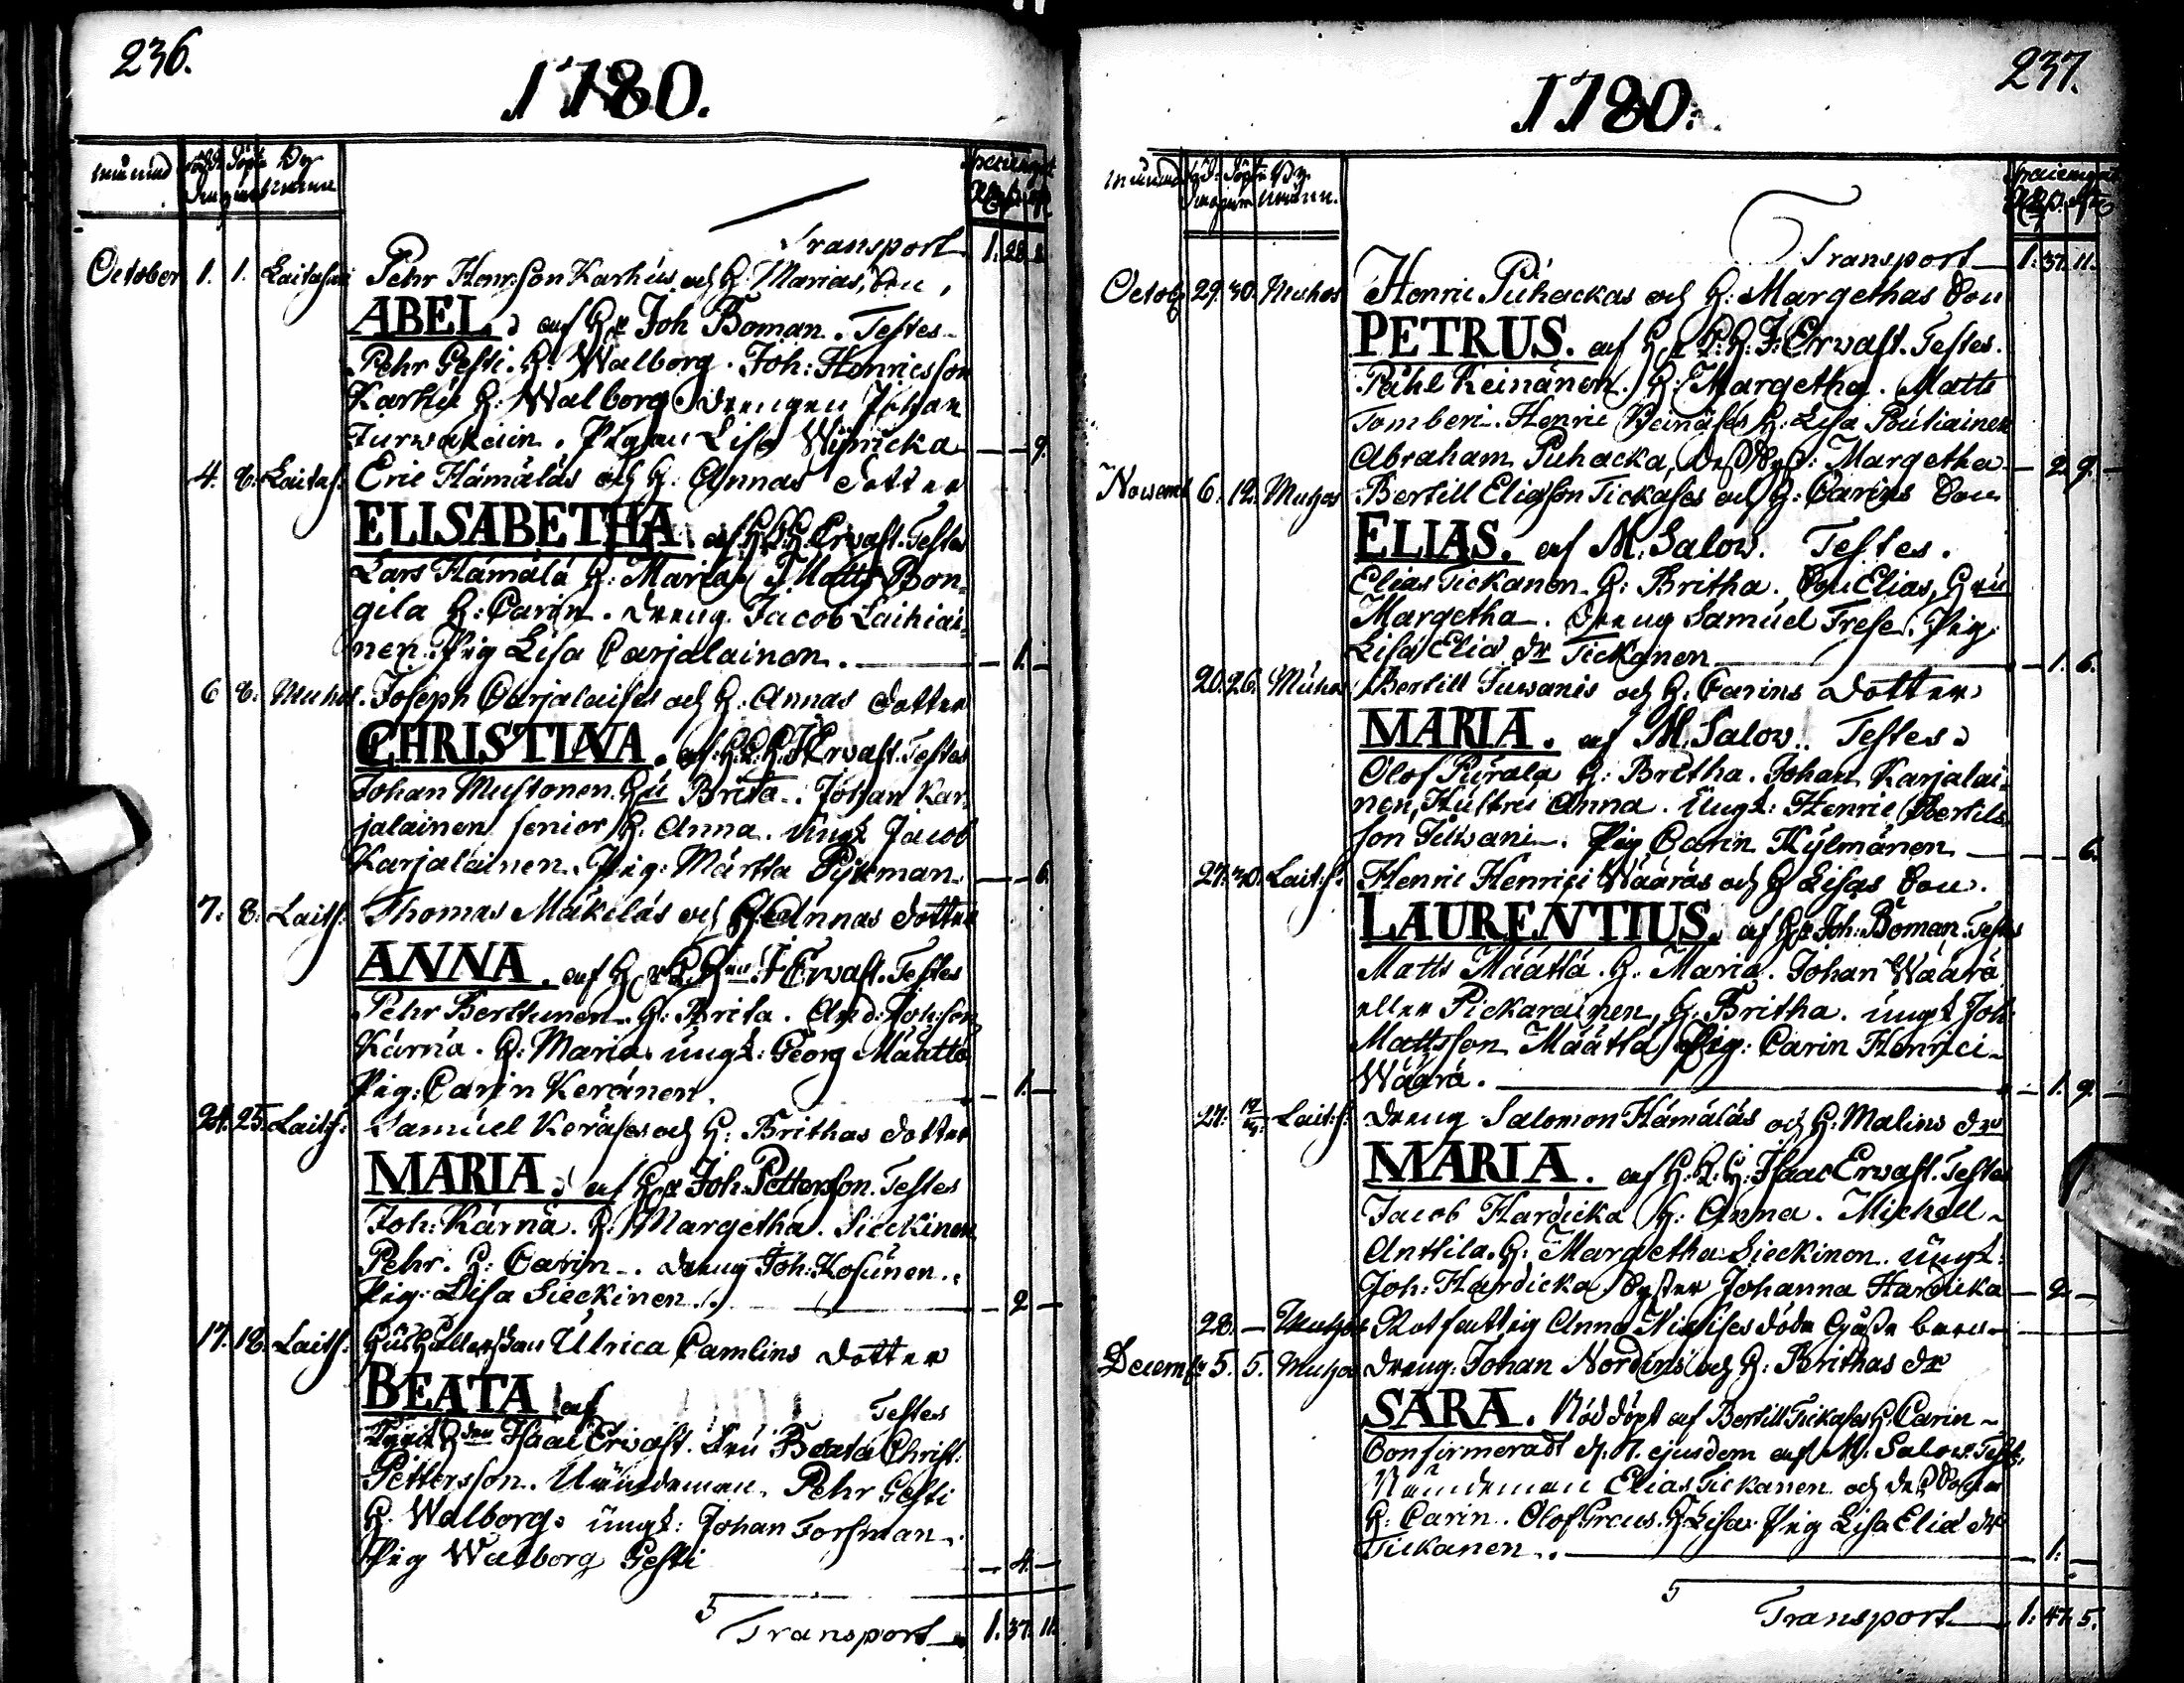 236.
1780.
månad född Döpt By
Dag namn
Transport 1. 28. 2.
October 1. 1. Laitasari Pehr Henr:son Karhus och H: Marias, Son,
ABEL. af H:r Joh Boman. Testes
Pehr Gesti. H: Walborg. Joh: Henricsson
Karhu H: Walborg. Drengen Johan
Turwakain. Pigan Lisa — — 9.
4. 8. Laitas: Eric Hämäläs och H: Annas dotter
ELISABETHA. af Erwast. Testes
Lars Hämälä H: Maria. Matts Bon-
gila H: Carin. Dreng. Jacob Laihiai-
nen. Pig Lisa Carjalainen. — 1. —
6 8. Muhos. Joseph Carjalaises och H: Annas dotter
CHRISTINA. af Erwast. Testes
Johan Mustonen. Hu Brita. Johan Kar-
jalainen senior H. Anna. Ungk Jacob
Karjalainen. Pig: Märtta Pykman. — — 6.
7. 8. Laits: Thomas Mäkeläs och H: Annas dotter
ANNA. af Erwast. Testes
Pehr Berthunen. H: Brita. And: Joh:son
Kärnä. H: Maria. ungk: Georg Määttä
Pig: Carin Keränen. — 1. —
24. 25. Lait:s: Samuel Keräses och H: Brithas dotter
MARIA. af H:r Joh: Pettersson. Testes
Joh: Kärnä. H: Margetha. Sieckinen
Pehr. H: Carin. dreng Joh: Kosunen.
Pig: Lisa Sieckinen. — 2 —
17. 18. Laits: Ulrica Camlins dotter
BEATA af Testes
Isaac Erwast. Fru Beata Christ:
Pettersson. Nämdeman. Pehr Gesti
H: Walborg. ungk: Johan Forsman.
Pig Walborg Gesti — 4. —
5
Transport 1. 37. 11.
237.
1780.
månad föd: Döpt By
namn.
Transport 1. 37. 11.
Octob 29. 30. Muhos Henric Puhackas och H: Margethas Son
PETRUS. af Erwast. Testes.
Påhl Keinänen. H: Margetha. Matts
Tomberi. Henric Keinäses H: Lisa Pouliainen
Abraham Puhacka, Margetha — 2. 9.
Novemb 6. 12. Muhos Bertill Eliasson Tickases och H: Carins Son
ELIAS. af M. Salow. Testes.
Elias Tickanen. H: Britha. Son Elias, Hru
Margetha. Dreng Samuel Frese. Pig
Lisa Elia dr Tickanen — 1. 6.
20. 26. Muhos Bertill Juwanis och H: Carins dotter
MARIA. af M. Salow. Testes
Olof Purala H: Britha. Johan Karjalai-
nen, Hustru Anna. Ungk: Henric Bertils-
son Juwani. Pig Carin Kylmänen — — 6.
27. 30. Lait:s: Henric Henrici Wääräs och H Lisas Son.
LAURENTIUS. af H:r Joh: Boman. Testes
Matts Määttä. H: Maria. Johan Wäärä
eller Pickarainen, H: Britha. ungk Joh:
Mattsson Määttä Pig: Carin Henrici
Wäärä. — 1. 9.
27. Lait:s: Dreng Salomon Hämäläs och H: Malins dr
MARIA. af H: Isaac Erwast. Testes
Jacob Hardicka H: Anna. Michell
Anttila. H: Margetha Sieckinen. ungk:
Joh: Hardicka Syster Johanna Hardicka — 2. —
28. — Muhos Rotfattig Anna döda barn
Decemb 5. 5. Muhos Dreng: Johan Nordins och H: Brithas dr
SARA. Nöddöpt af Bertill Tickases H: Carin
Confirmeradt d. 7. ejusdem af M. Salow. Test:
Nämdeman Elias Tickanen och
H: Carin. Olof Greus. H Lisa. Pig Lisa Elia dr
Tickanen. — 1. —
5
Transport 1. 47. 5.